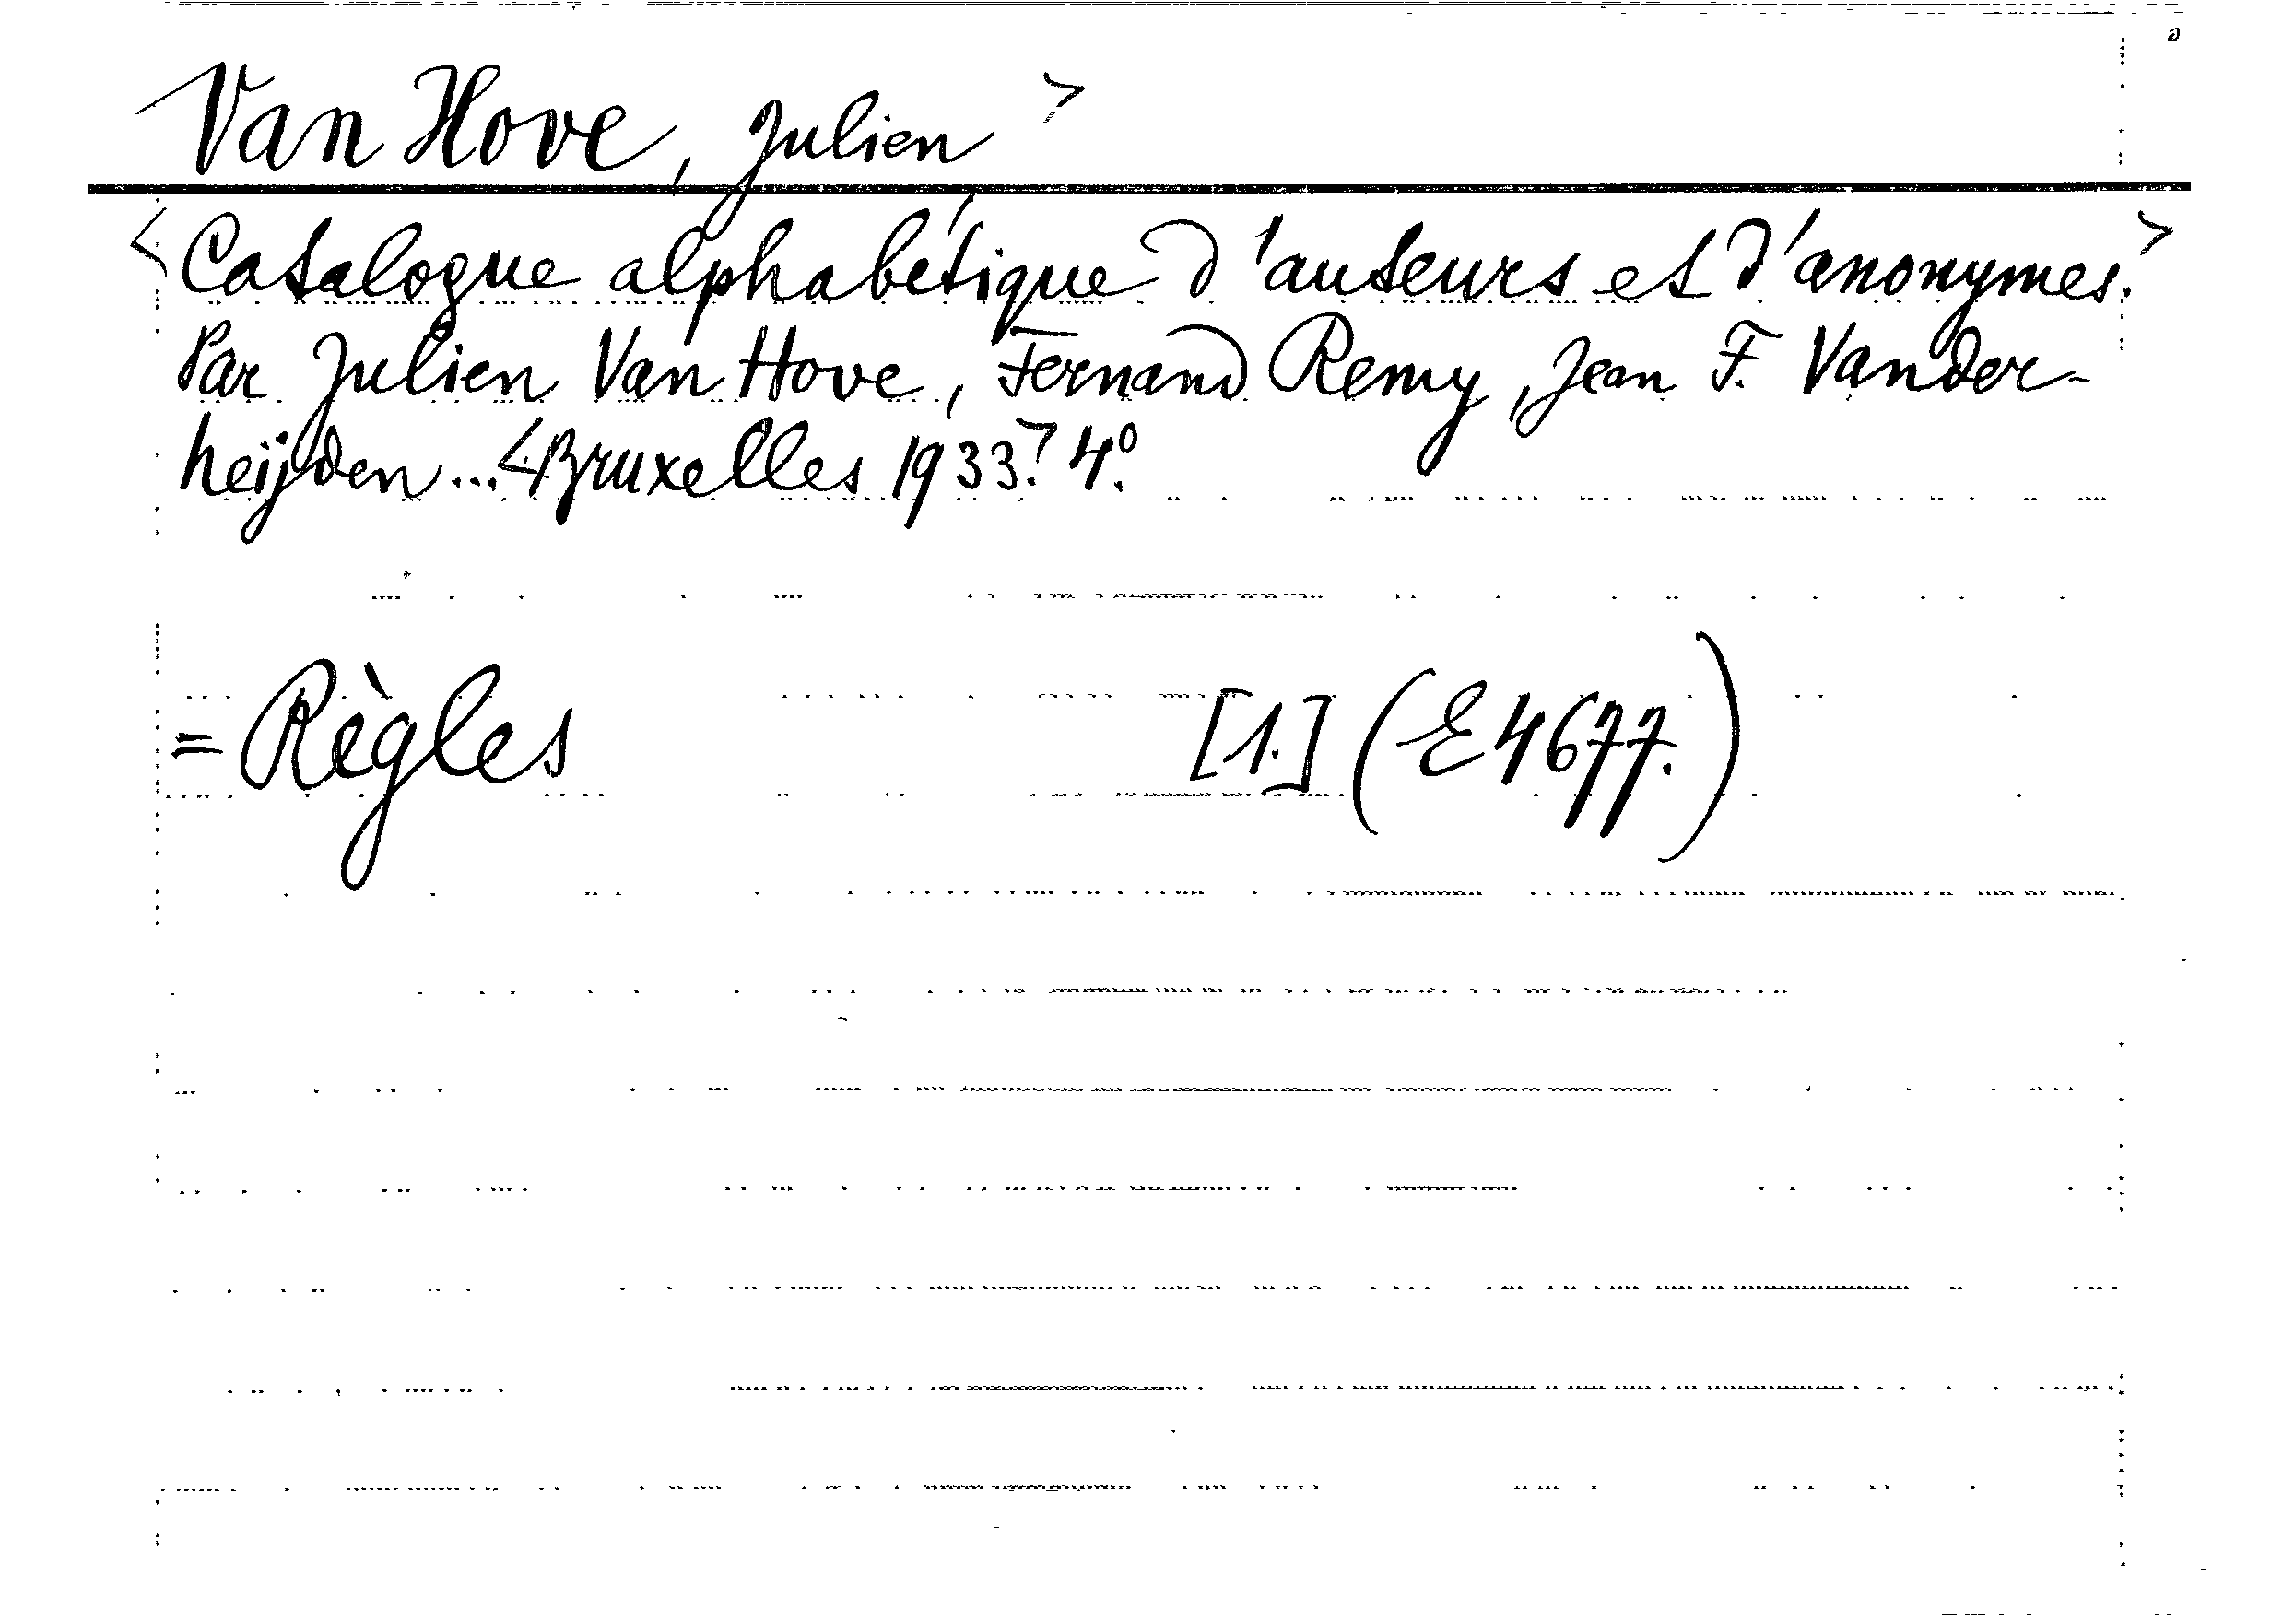 Van Hove, Julien >
< Catalogue alphabétique d'auteurs et d'anonymes. >
Par Julien Van Hove, Fernand Remy, Jean F. Vander-
heijden... < Bruxelles 1933. > 4°.
= Règles [1.] (E 4677.)